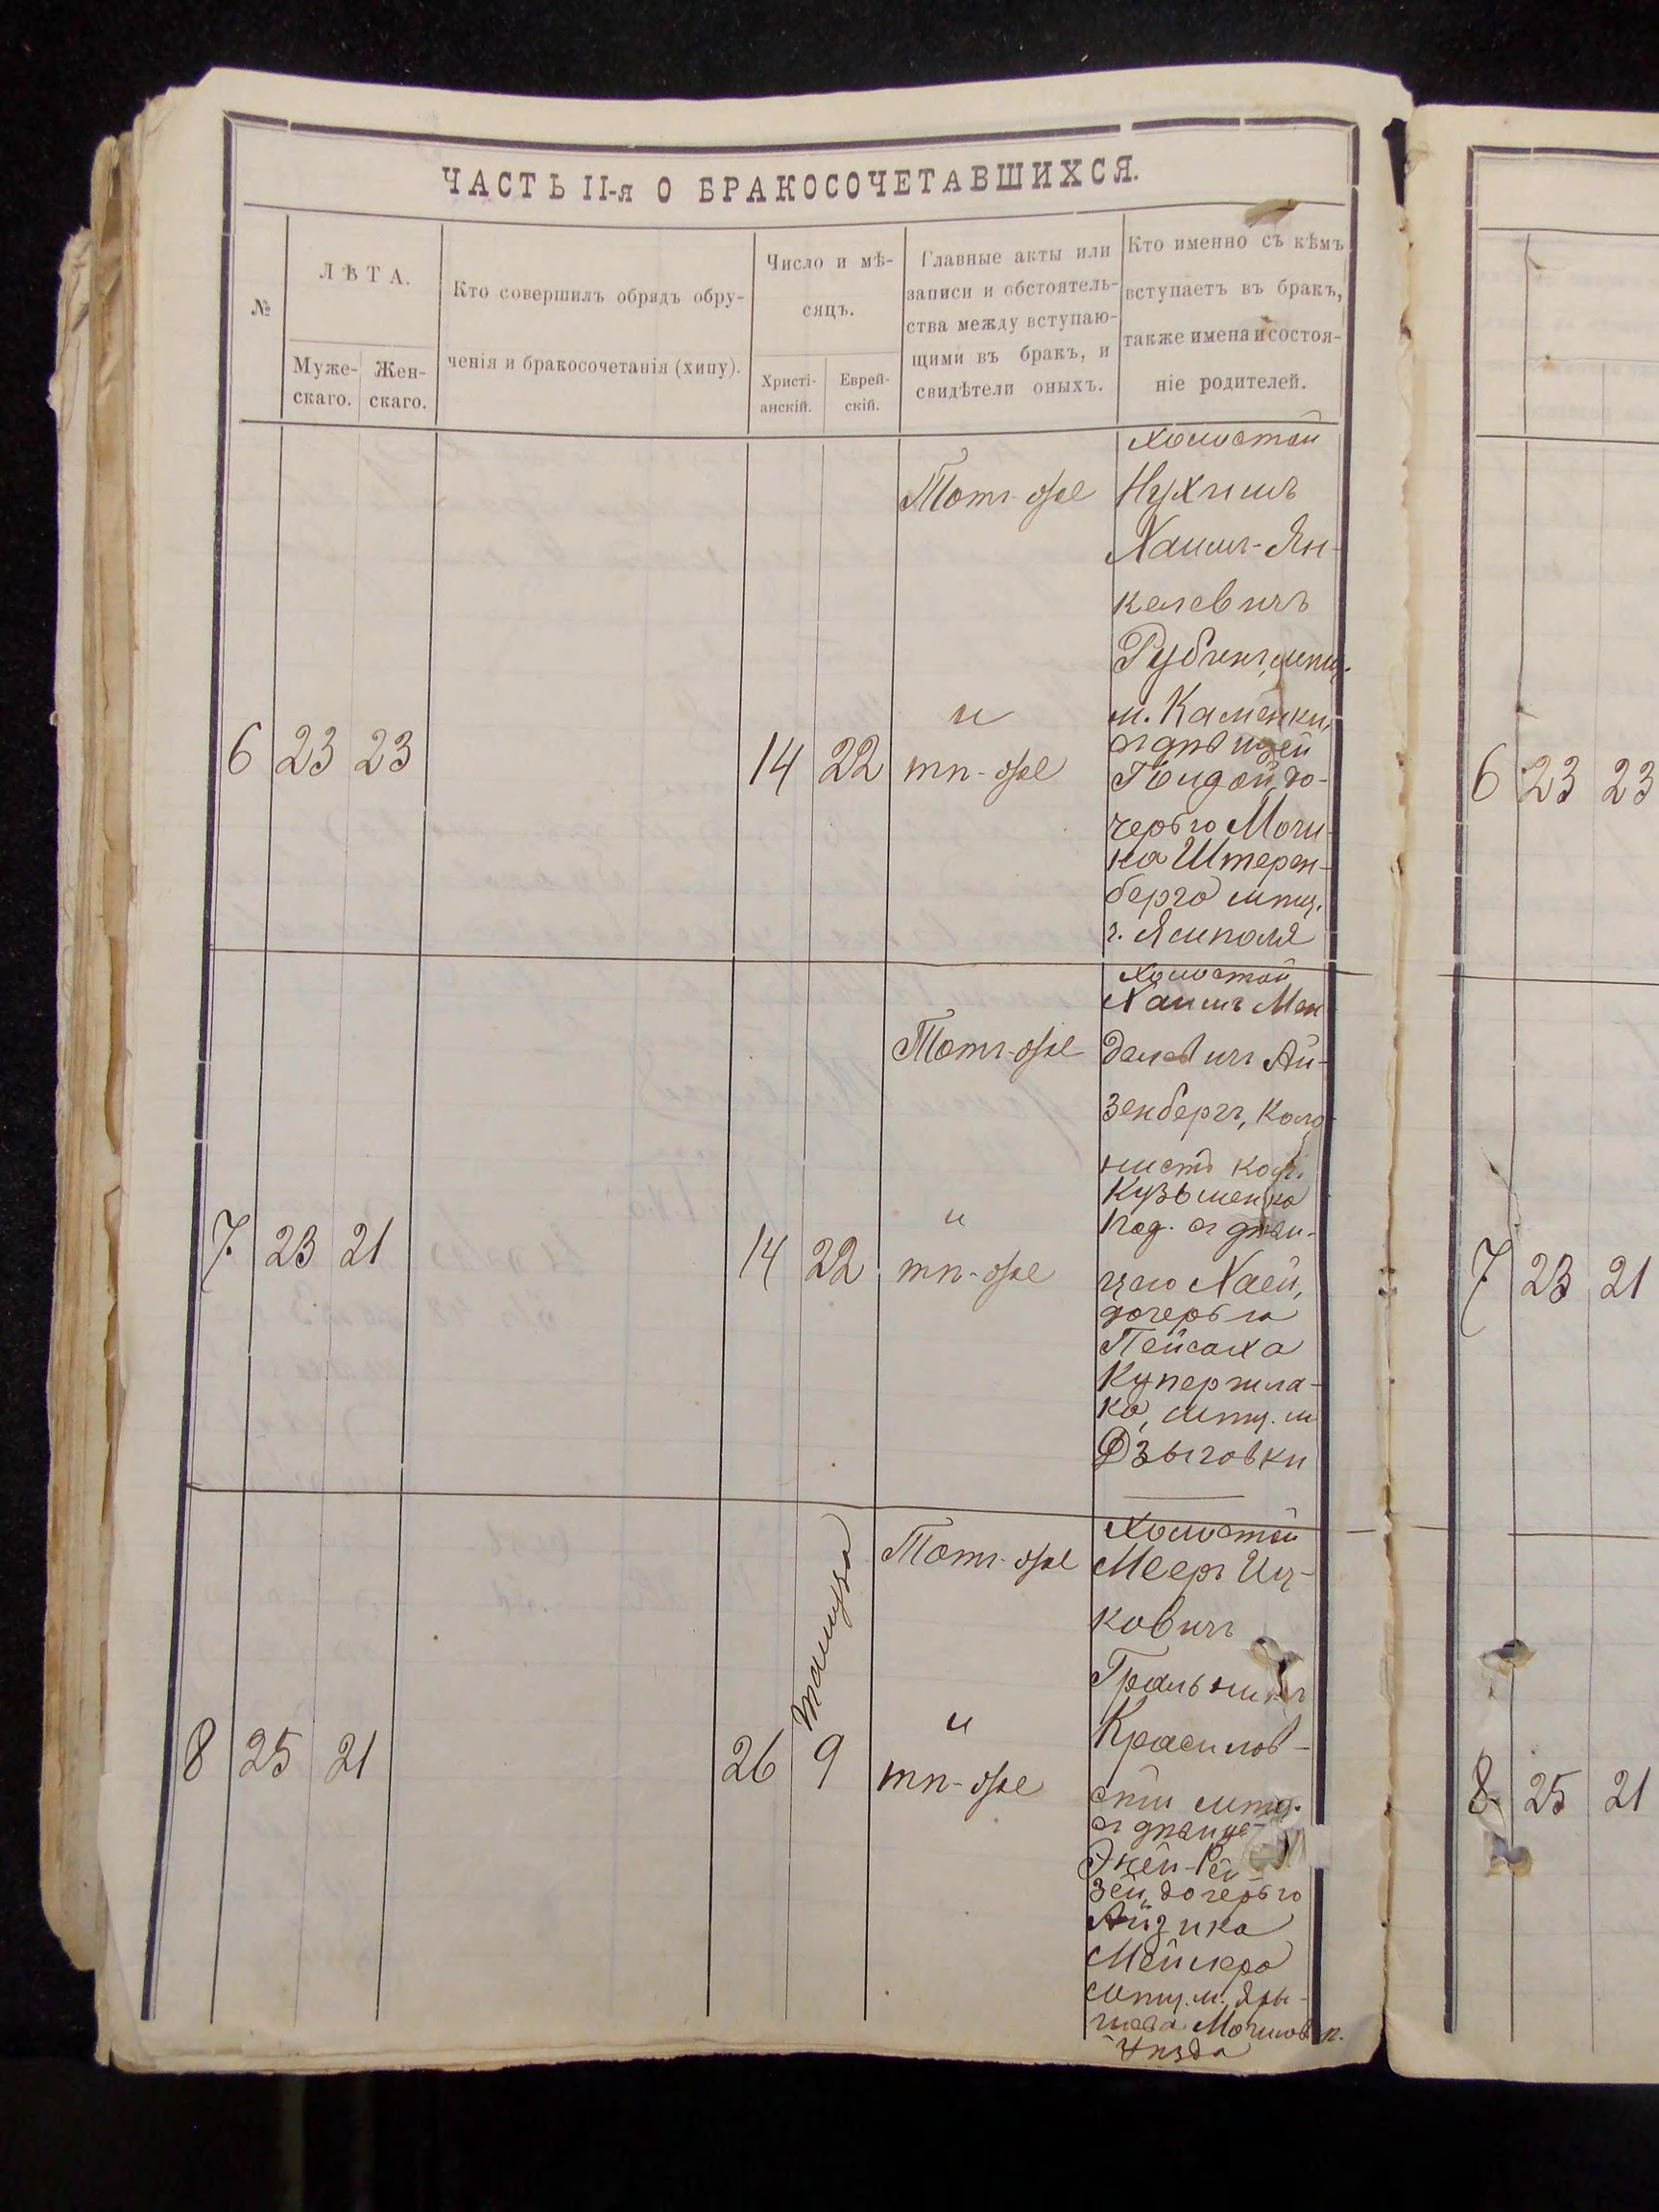 ЧАСТЬ II-я О БРАКОСОЧЕТАВШИХСЯ.
№
ЛѢТА.
Муже-
скаго.
Жен-
скаго.
Кто совершилъ обрядъ обру-
ченія и бракосочетанія (хипу).
Число и мѣ-
сяцъ.
Христі-
анскій.
Еврей-
скій.
Главные акты или
записи и обстоятель-
ства между вступаю-
щими въ бракъ, и
свидѣтели оныхъ.
Кто именно съ кѣмъ
вступаетъ въ бракъ,
также имена и состоя-
ніе родителей.
6 23 23
14 22
и
Холостой
Нухимъ
Хаимъ-Ян-
келевичъ
Рубинъ, мѣщ.
м. Каменки,
съ дѣвицей
до-
черью
ка Штерен-
берга мѣщ.
г. Ямполя
7 23 21
14 22
и
Холостой
Хаимъ Мен
делевичъ Ай-
зенбергъ, Коло
нистъ кол.
Кузьменка
Под. съ дѣви-
цею Хаей,
дочерью
Пейсаха
Купершла-
ка, мѣщ. м
Дзыговки
8 25 21
26 9
Тамуза
и
Холостой
Мееръ Иц-
ковичъ
Красилов-
скій мѣщ.
съ дѣвице
зей, дочерью
Айзика
Мейлера
мѣщ. м. Яры-
шева Могилев.
Уѣзда
6 23 23
7 23 21
8 25 21